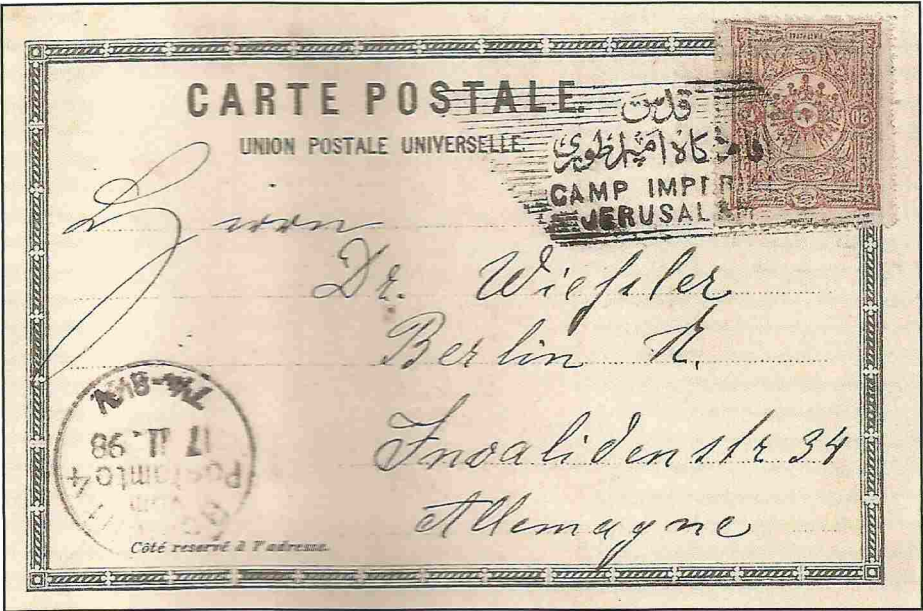 CARTE POSTALE.
UNION POSTALE UNIVERSELLE.
قدس
CAMP IMPER
JERUSALEM
20
Herrn
Dr. Wiessler
Berlin N.
Invalidenstr 34
Allemagne
Postamt 4
17 11. 98
7¼-8½V.
Côté reservé à l'adresse.